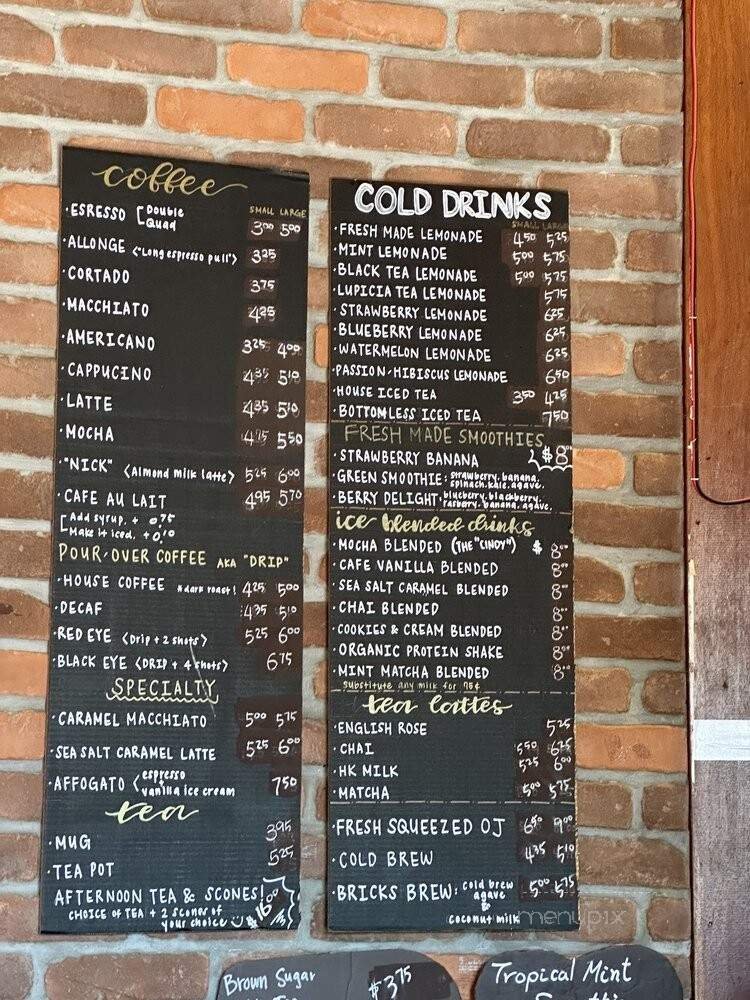 coffee
SMALL LARGE
·ESRESSO [Double Quad 3⁰⁰ 5⁰⁰
·ALLONGE <"Long espresso pull"> 3²⁵
·CORTADO 3⁷⁵
·MACCHIATO
·AMERICANO 3²⁵ 4⁰⁰
·CAPPUCINO 4³⁵ 5¹⁰
·LATTE 4³⁵ 5¹⁰
·MOCHA 4⁷⁵ 5⁵⁰
·"NICK" <Almond milk latte> 5²⁵ 6⁰⁰
·CAFE AU LAIT 4⁹⁵ 5⁷⁰
[Add syrup. + 0.75
Make it iced. + 0.10
POUR·OVER COFFEE AKA "DRIP"
·HOUSE COFFEE *dark roast! 4²⁵ 5⁰⁰
·DECAF 4³⁵ 5¹⁰
·RED EYE <Drip + 2 shots> 5²⁵ 6⁰⁰
·BLACK EYE <DRIP + 4 shots> 6⁷⁵
SPECIALTY
·CARAMEL MACCHIATO 5⁰⁰ 5⁷⁵
·SEA SALT CARAMEL LATTE 5²⁵ 6⁰⁰
·AFFOGATO <espresso + vanilla ice cream 7⁵⁰
tea
·MUG 3⁹⁵
·TEA POT 5²⁵
AFTERNOON TEA & SCONES!
CHOICE OF TEA + 2 scones of
your choice $16⁰⁰
COLD DRINKS
SMALL LARGE
·FRESH MADE LEMONADE 4⁵⁰ 5²⁵
·MINT LEMONADE 5⁰⁰ 5⁷⁵
·BLACK TEA LEMONADE 5⁰⁰ 5⁷⁵
·LUPICIA TEA LEMONADE 5⁷⁵
·STRAWBERRY LEMONADE 6²⁵
·BLUEBERRY LEMONADE 6²⁵
·WATERMELON LEMONADE 6²⁵
·PASSION·HIBISCUS LEMONADE 6⁵⁰
·HOUSE ICED TEA 3⁵⁰ 4²⁵
·BOTTOMLESS ICED TEA 7⁵⁰
FRESH MADE SMOOTHIES
·STRAWBERRY BANANA $8
·GREEN SMOOTHIE: strawberry. banana.
spinach. kale. agave.
·BERRY DELIGHT: blueberry. blackberry.
rasberry. banana. agave.
ice blended drinks
·MOCHA BLENDED (THE "CINDY") $ 8⁰⁰
·CAFE VANILLA BLENDED 8⁰⁰
·SEA SALT CARAMEL BLENDED 8⁰⁰
·CHAI BLENDED 8⁰⁰
·COOKIES & CREAM BLENDED 8⁰⁰
·ORGANIC PROTEIN SHAKE 8⁰⁰
·MINT MATCHA BLENDED 8⁰⁰
substitute any milk for 75¢
tea lattes
·ENGLISH ROSE 5²⁵
·CHAI 5⁵⁰ 6²⁵
·HK MILK 5²⁵ 6⁰⁰
·MATCHA 5⁰⁰ 5⁷⁵
·FRESH SQUEEZED OJ 6⁵⁰ 9⁰⁰
·COLD BREW 4³⁵ 5¹⁰
·BRICKS BREW: cold brew 5⁰⁰ 5⁷⁵
agave
&
coconut milk
menupix
Brown Sugar
$3⁷⁵
Tropical Mint